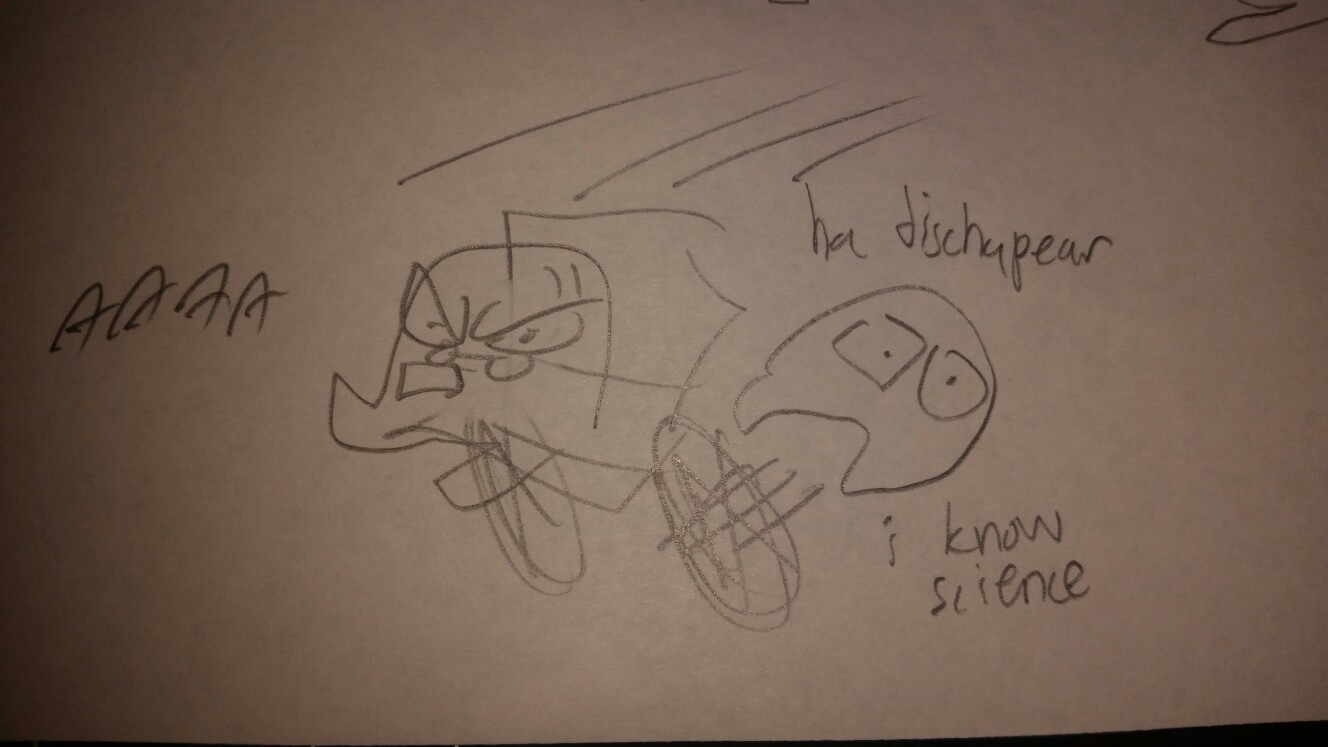 AAAA
ha dischapear
i know
science